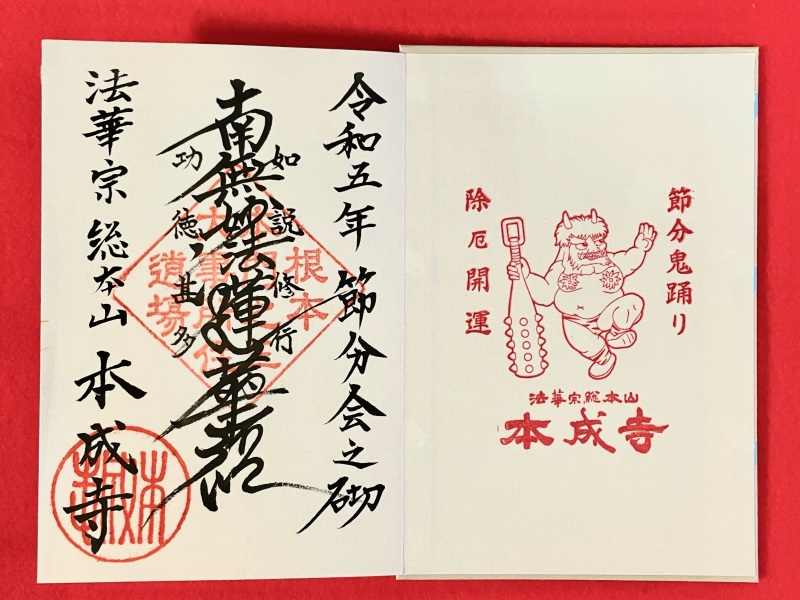 節分鬼踊り
除厄開運
法華宗総本山
本成寺
令和五年 節分会之砌
如説修行
南無妙法蓮華経
功徳甚多
法華宗 総本山 本成寺
根本
道場
本成寺